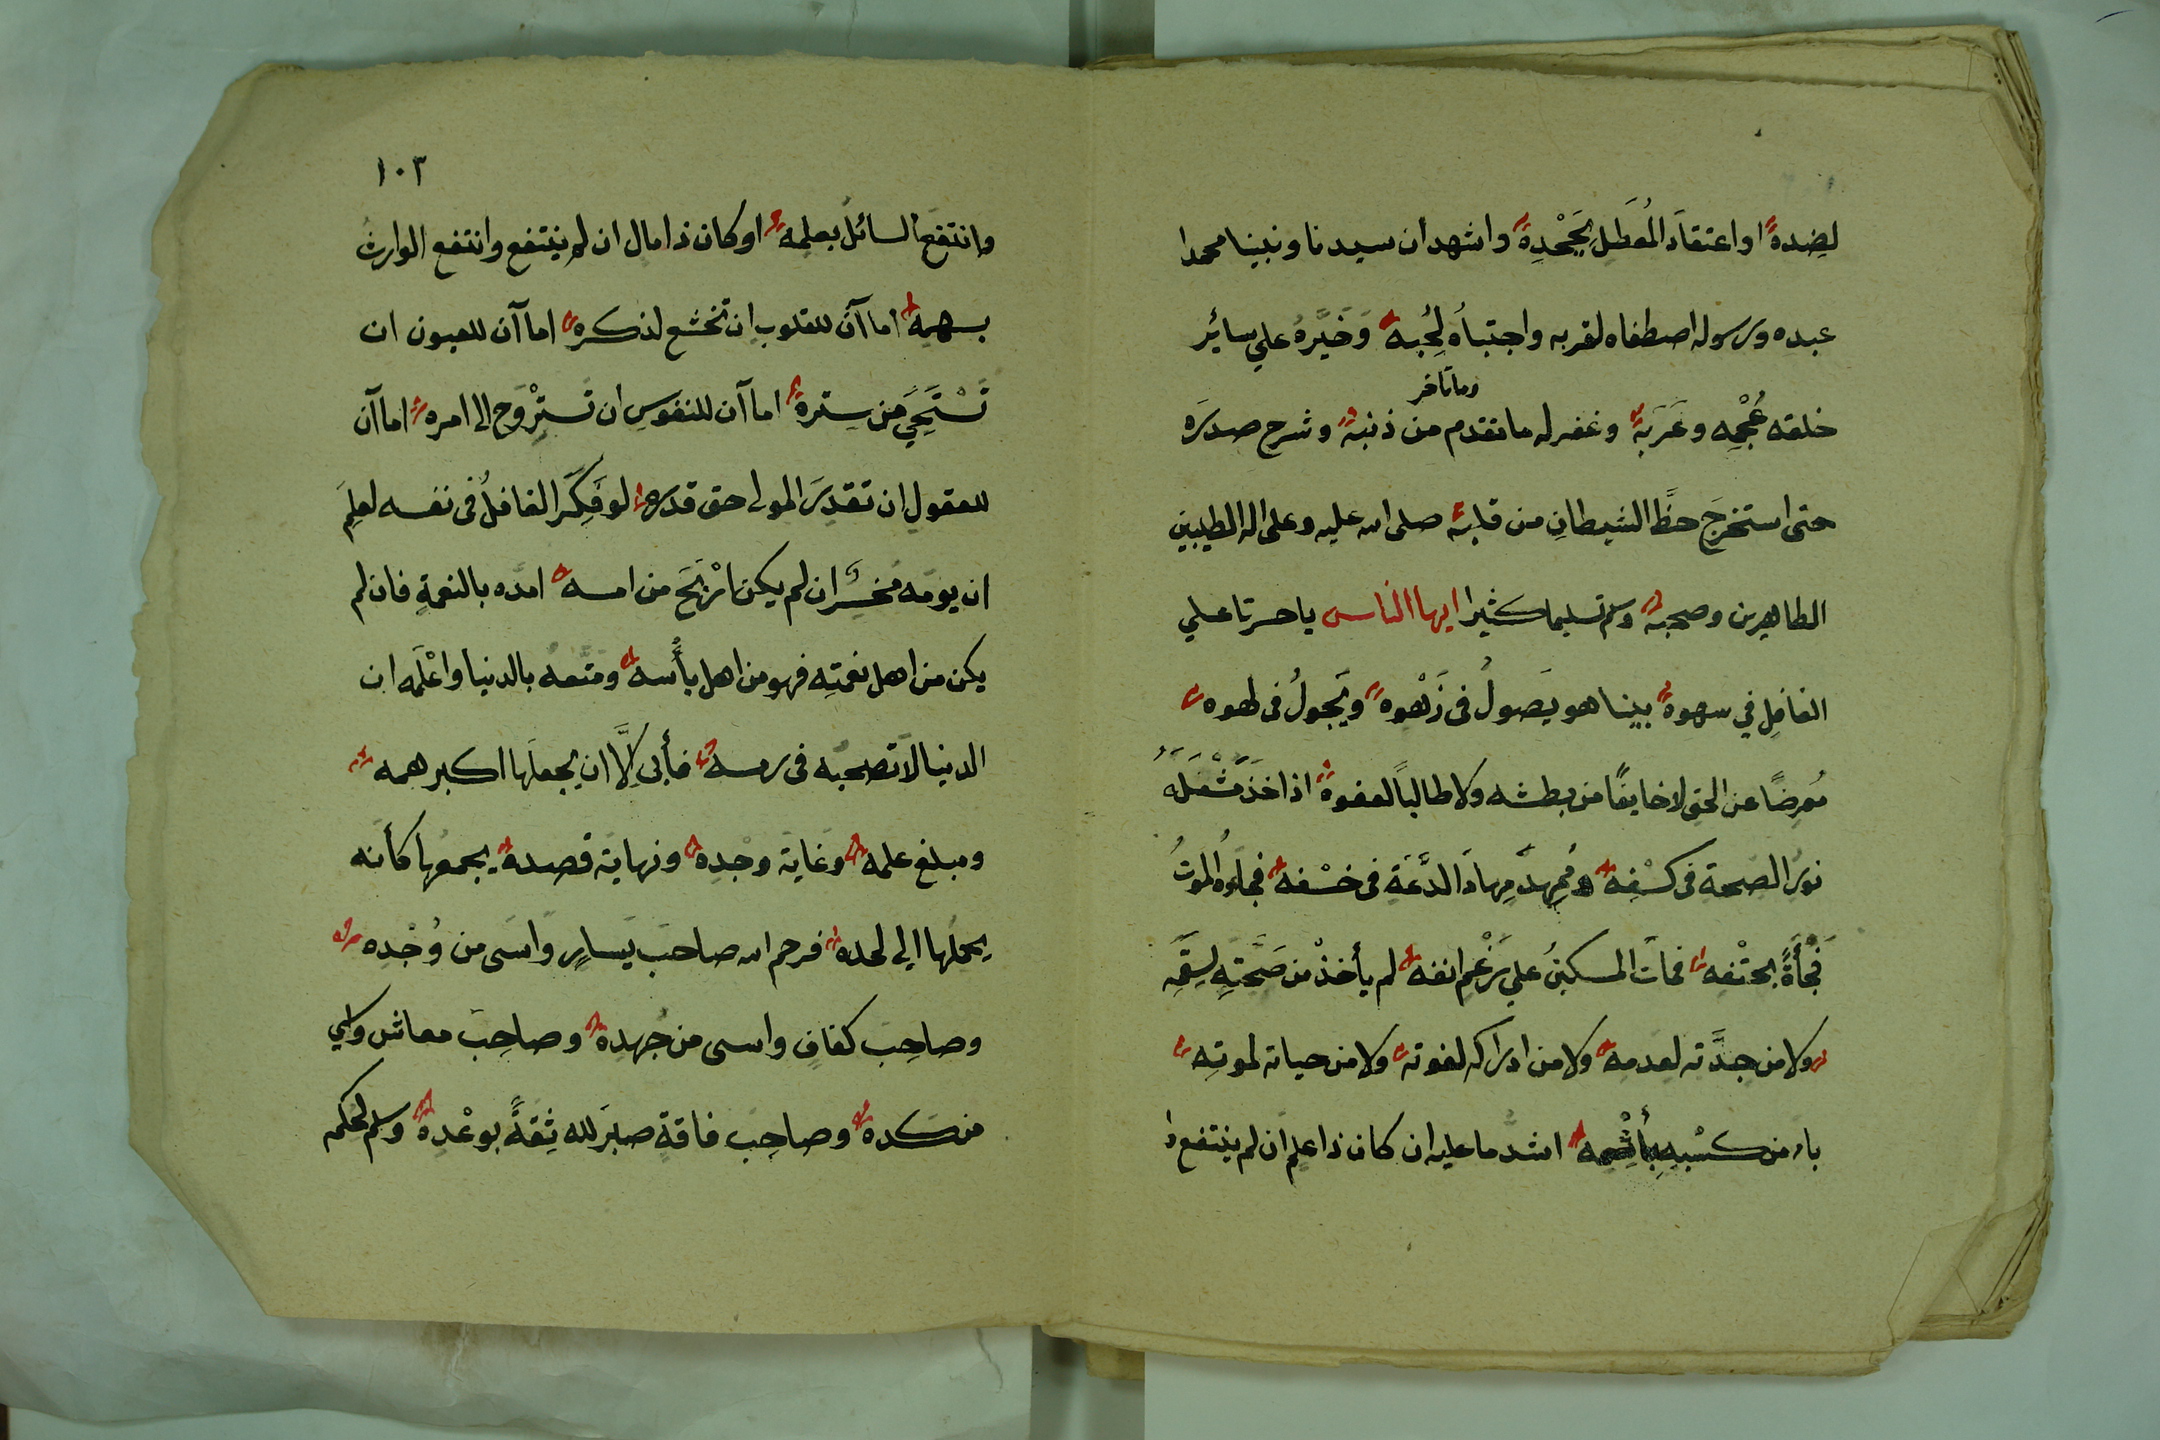 لِضِدهِ او اعتقادَ المُعَطِلِ بِجَحْدِهِ واشهد ان سيدنا ونبينا محمدا
عبده ورسوله اصطفاه لقربه واجتباهُ لِحُبه وَخَيَّرهُ علي سائِر
وما تاخر
خلقه عُجْمِه وعَرَبه وغفر له ما تقدم من ذنبه وشرح صدرَه
حتى استخرجَ حظَّ الشيطانِ من قلبه صلى الله عليه وعلى اله الطيبين
الطاهرين وصحبه وسلم تسليما كثيرا ايها الناس يا حسرتا علي
الغافِلِ في سهوهِ بينا هو يَصولُ فى زَهْوهِ ويَجولُ فى لهوه
مُعرِضًا عن الحق لا خايفًا من بطشه ولا طالباً لعفوهِ اذ اخذَ
نورُ الصحة فى كسْفِه ومُهِدَ مِهادَ الدَّعَةِ فى خسْفه فجاءهُ الموتُ
فَجْأَةً بحتْفه فماتَ المسكينُ علي رَغْمِ انفه لم يأخذْ من صَحَّتِهِ لِسَقَمِه
ولا من جدَّته لعدمه ولا من ادراكه لفوته ولا من حياته لموتِه
باء من كسْبِهِ بأثمه اشد ما عليه ان كان ذا علمٍ ان لم ينتفع
١٠٣
وانتفعَ السائلُ بعلمِه او كان ذا مال ان لم ينتفع وانتفع الوارثُ
بسهمه اما آن للقلوبِ ان تخشع لذكره اما آن للعيون ان
تَسْتَحِيَ من سِترهِ اما آن للنفوسِ ان تَستِرْوحَ الى امره اما آن
للعقول ان تقدِرَ المولى حق قدره لو فكَّرَ الغافلُ فى نفسه لعلِمَ
ان يومَه خُسران لم يكن ارْبَحَ من امسه امدَّه بالنعمةِ فان لم
يكن من اهل نعمتِه فهو من اهل بأْسه ومتعهُ بالدنيا واعْلَمه ان
الدنيا لا تصحبه فى رمسه فأبى الَّا ان يجعلَها اكبر همه
ومبلغ علمه وغاية وجْدِه ونهاية قصده يجمعُها كأنه
يحملُها الى لحده فرحم الله صاحبَ يَسارٍ واسَى من وُجْدِه
وصاحِبَ كفافٍ واسى من جُهدِهِ وصاحِبَ معاش واسي
من كدهِ وصاحِبَ فاقةٍ صبرَ لله ثِقةً بوعْدهِ وسلم لحكمه